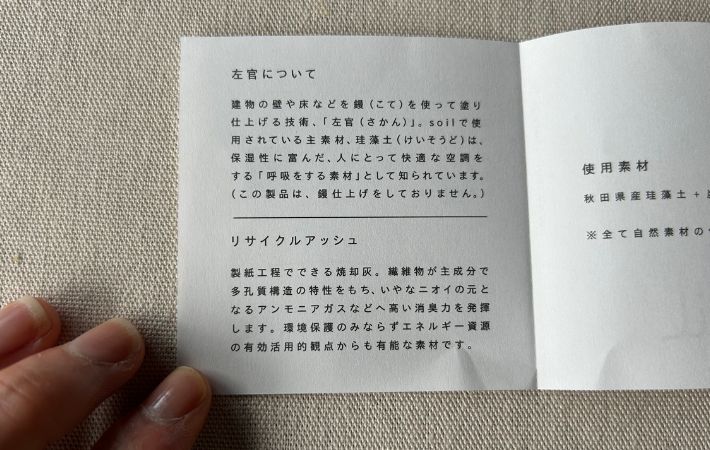 左官について
建物の壁や床などを鏝（こて）を使って塗り
仕上げる技術、「左官（さかん）」。soilで使
用されている主素材、珪藻土（けいそうど）は、
保湿性に富んだ、人にとって快適な空調を
する「呼吸をする素材」として知られています。
（この製品は、鏝仕上げをしておりません。）
リサイクルアッシュ
製紙工程でできる焼却灰。繊維物が主成分で
多孔質構造の特性をもち、いやなニオイの元と
なるアンモニアガスなどへ高い消臭力を発揮
します。環境保護のみならずエネルギー資源
の有効活用的観点からも有能な素材です。
使用素材
秋田県産珪藻土 +
※全て自然素材の